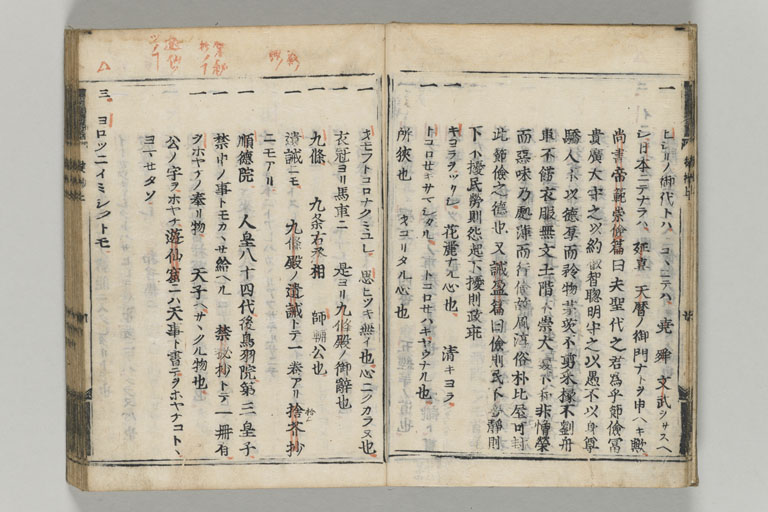 一 ヒシリノ御代トハ コヽニテハ 堯 舜 文武ヲサスヘ
シ日本ニテナラハ 延喜 天暦ノ御門ナトヲ申ヘキ歟
尚書帝範崇儉篇曰夫聖代之君為乎節儉富
貴廣大守之以約叡智聰明守之以愚不以身尊
驕人不以德厚而矜物茅茨不剪采椽不斲舟
車不飾衣服無文土階不崇大羹不和非憎榮
而惡味乃處薄而行儉故風淳俗朴比屋可封
此節儉之德也 又誡盈篇曰儉則民不勞靜則
下不擾民勞則怨起下擾則政乖
一 キヨラヲツクシ 花麗ナル心也 清キヨラ
一 トコロセキサマシタル トコロセハキヤウナル也
所狭也 オコリタル心也
一 オモフトコロナクミユレ 思ヒツキ無イ也心ニクカラヌ也
一 衣冠ヨリ馬車ニ 是ヨリ九條殿ノ御辞也
一 九條 九条右丞相 師輔公也
一 遺誡ニモ 九條殿ノ遺誡トテ一巻アリ拾芥抄
ニモアリ
一 順徳院 人皇八十四代後鳥羽院第三皇子
一 禁中ノ事トモカヽセ給ヘル 禁秘抄トテ一冊有
一 ヲホヤケノ奉リ物 天子ヘサヽクル物也
公ノ字ヲホヤケ遊仙窟ニハ天事ト書テヲホヤケコトヽ
ヨマセタソ
三 ヨロツニイミシクトモ